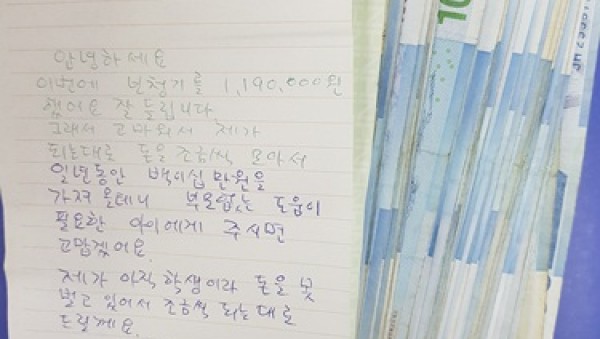 안녕하세요
이번에 보청기를 1,190,000원
했어요 잘 들립니다
그래서 고마워서 제가
되는대로 돈을 조금씩 모아서
일년동안 백이십 만원을
가져 올테니 부모없는 도움이
필요한 아이에게 주시면
고맙겠어요.
제가 아직 학생이라 돈을 못
벌고 있어서 조금씩 되는대로
드릴께요.